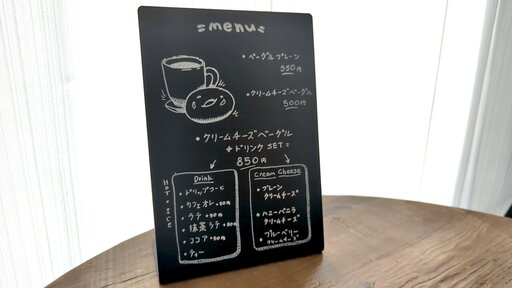 menu
・ベーグル プレーン
350円
・クリームチーズベーグル
500円
・クリームチーズベーグル
+ドリンク SET=
850円
HOT・ICE
Drink
・ドリップコーヒー
・カフェオレ+50円
・ラテ+50円
・抹茶ラテ+50円
・ココア+50円
・ティー
Cream Cheese
・プレーン
クリームチーズ
・ハニーバニラ
クリームチーズ
・ブルーベリー
クリームチーズ